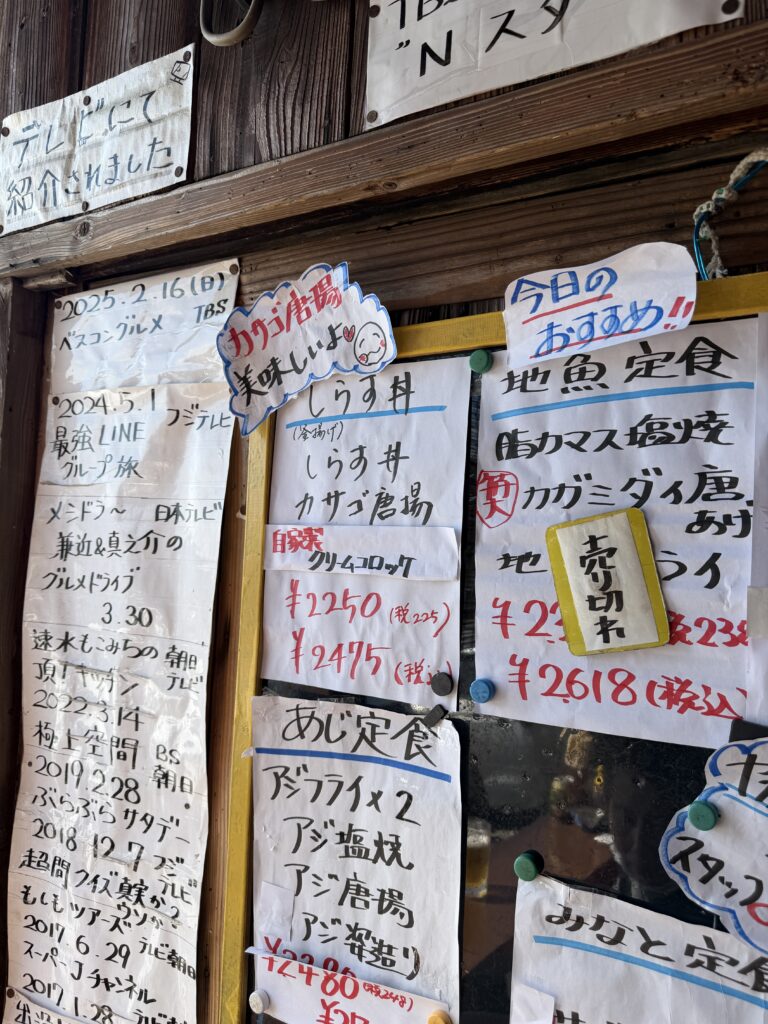 テレビにて
紹介されました
"Nスタ
2025.2.16(日)
ベスコングルメ TBS
2024.5.1 フジテレビ
最強LINE
グループ旅
メンドラ〜 日本テレビ
兼近&真之介の
グルメドライブ
3.30
速水もこみちの 朝日テレビ
頂!キッチン
2022.3.14
極上空間 BS朝日
2019.2.28
ぶらぶらサタデー
2018 12.7 フジテレビ
超問クイズ真実か?ウソか?
もしもツアーズ
2017.6.29 テレビ朝日
スーパーJチャンネル
2017.1.28
カサゴ唐揚
美味しいよ
しらす丼
(釜揚げ)
しらす丼
カサゴ唐揚
自家製
クリームコロッケ
¥2250(税225)
¥2475(税込)
今日の
おすすめ!!
地魚定食
脂カマス塩焼
カガミダイ唐
あげ
地
ライ
売り切れ
¥2618(税込)
あじ定食
アジフライ×2
アジ塩焼
アジ唐揚
アジ
¥2480(税248)
スタッフ
みなと定食